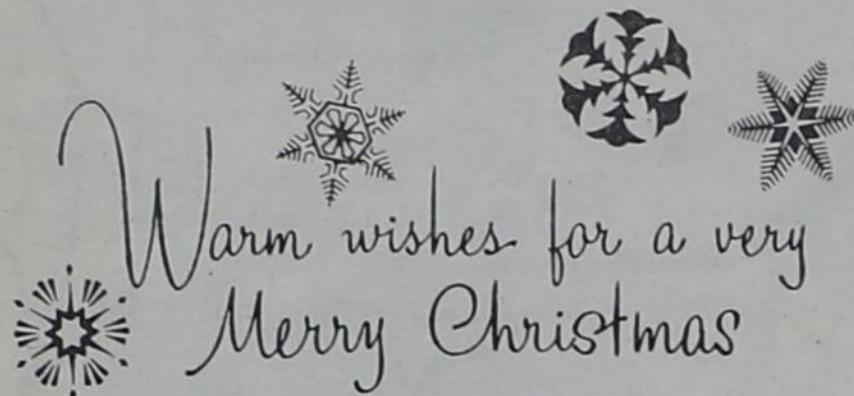 Warm wishes for a very
Merry Christmas